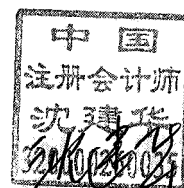 中国
注册会计师
沈建华